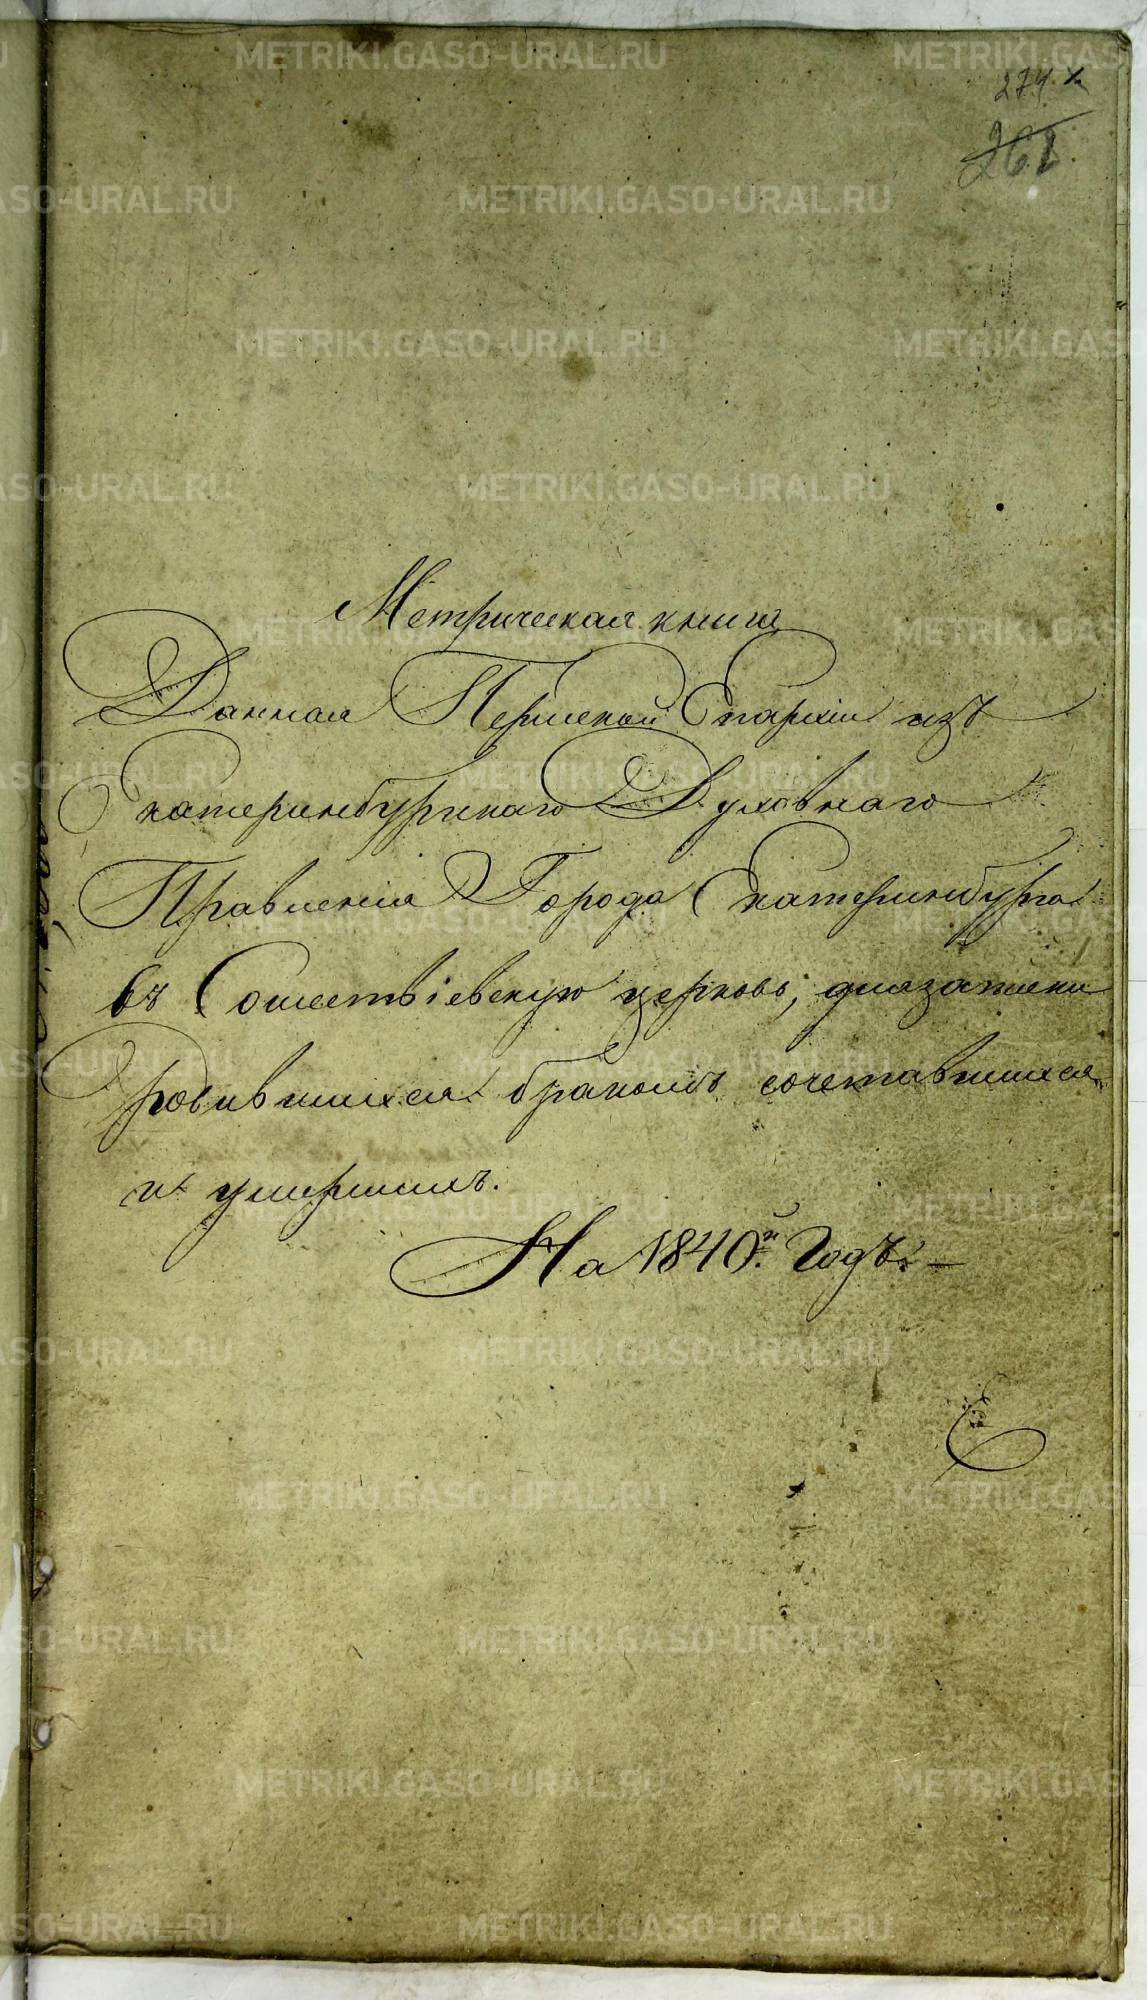 274
268.
Метрическая книга
Данная Пермской Епархіи изъ
Екатеринбургскаго Духовнаго
Правленія Города Екатеринбурга
въ Сошествіевскую церковь, для записки
Родившихся бракомъ сочетавшихся,
и умершихъ.
На 1840й. Годъ.—
METRIKI.GASO-URAL.RU